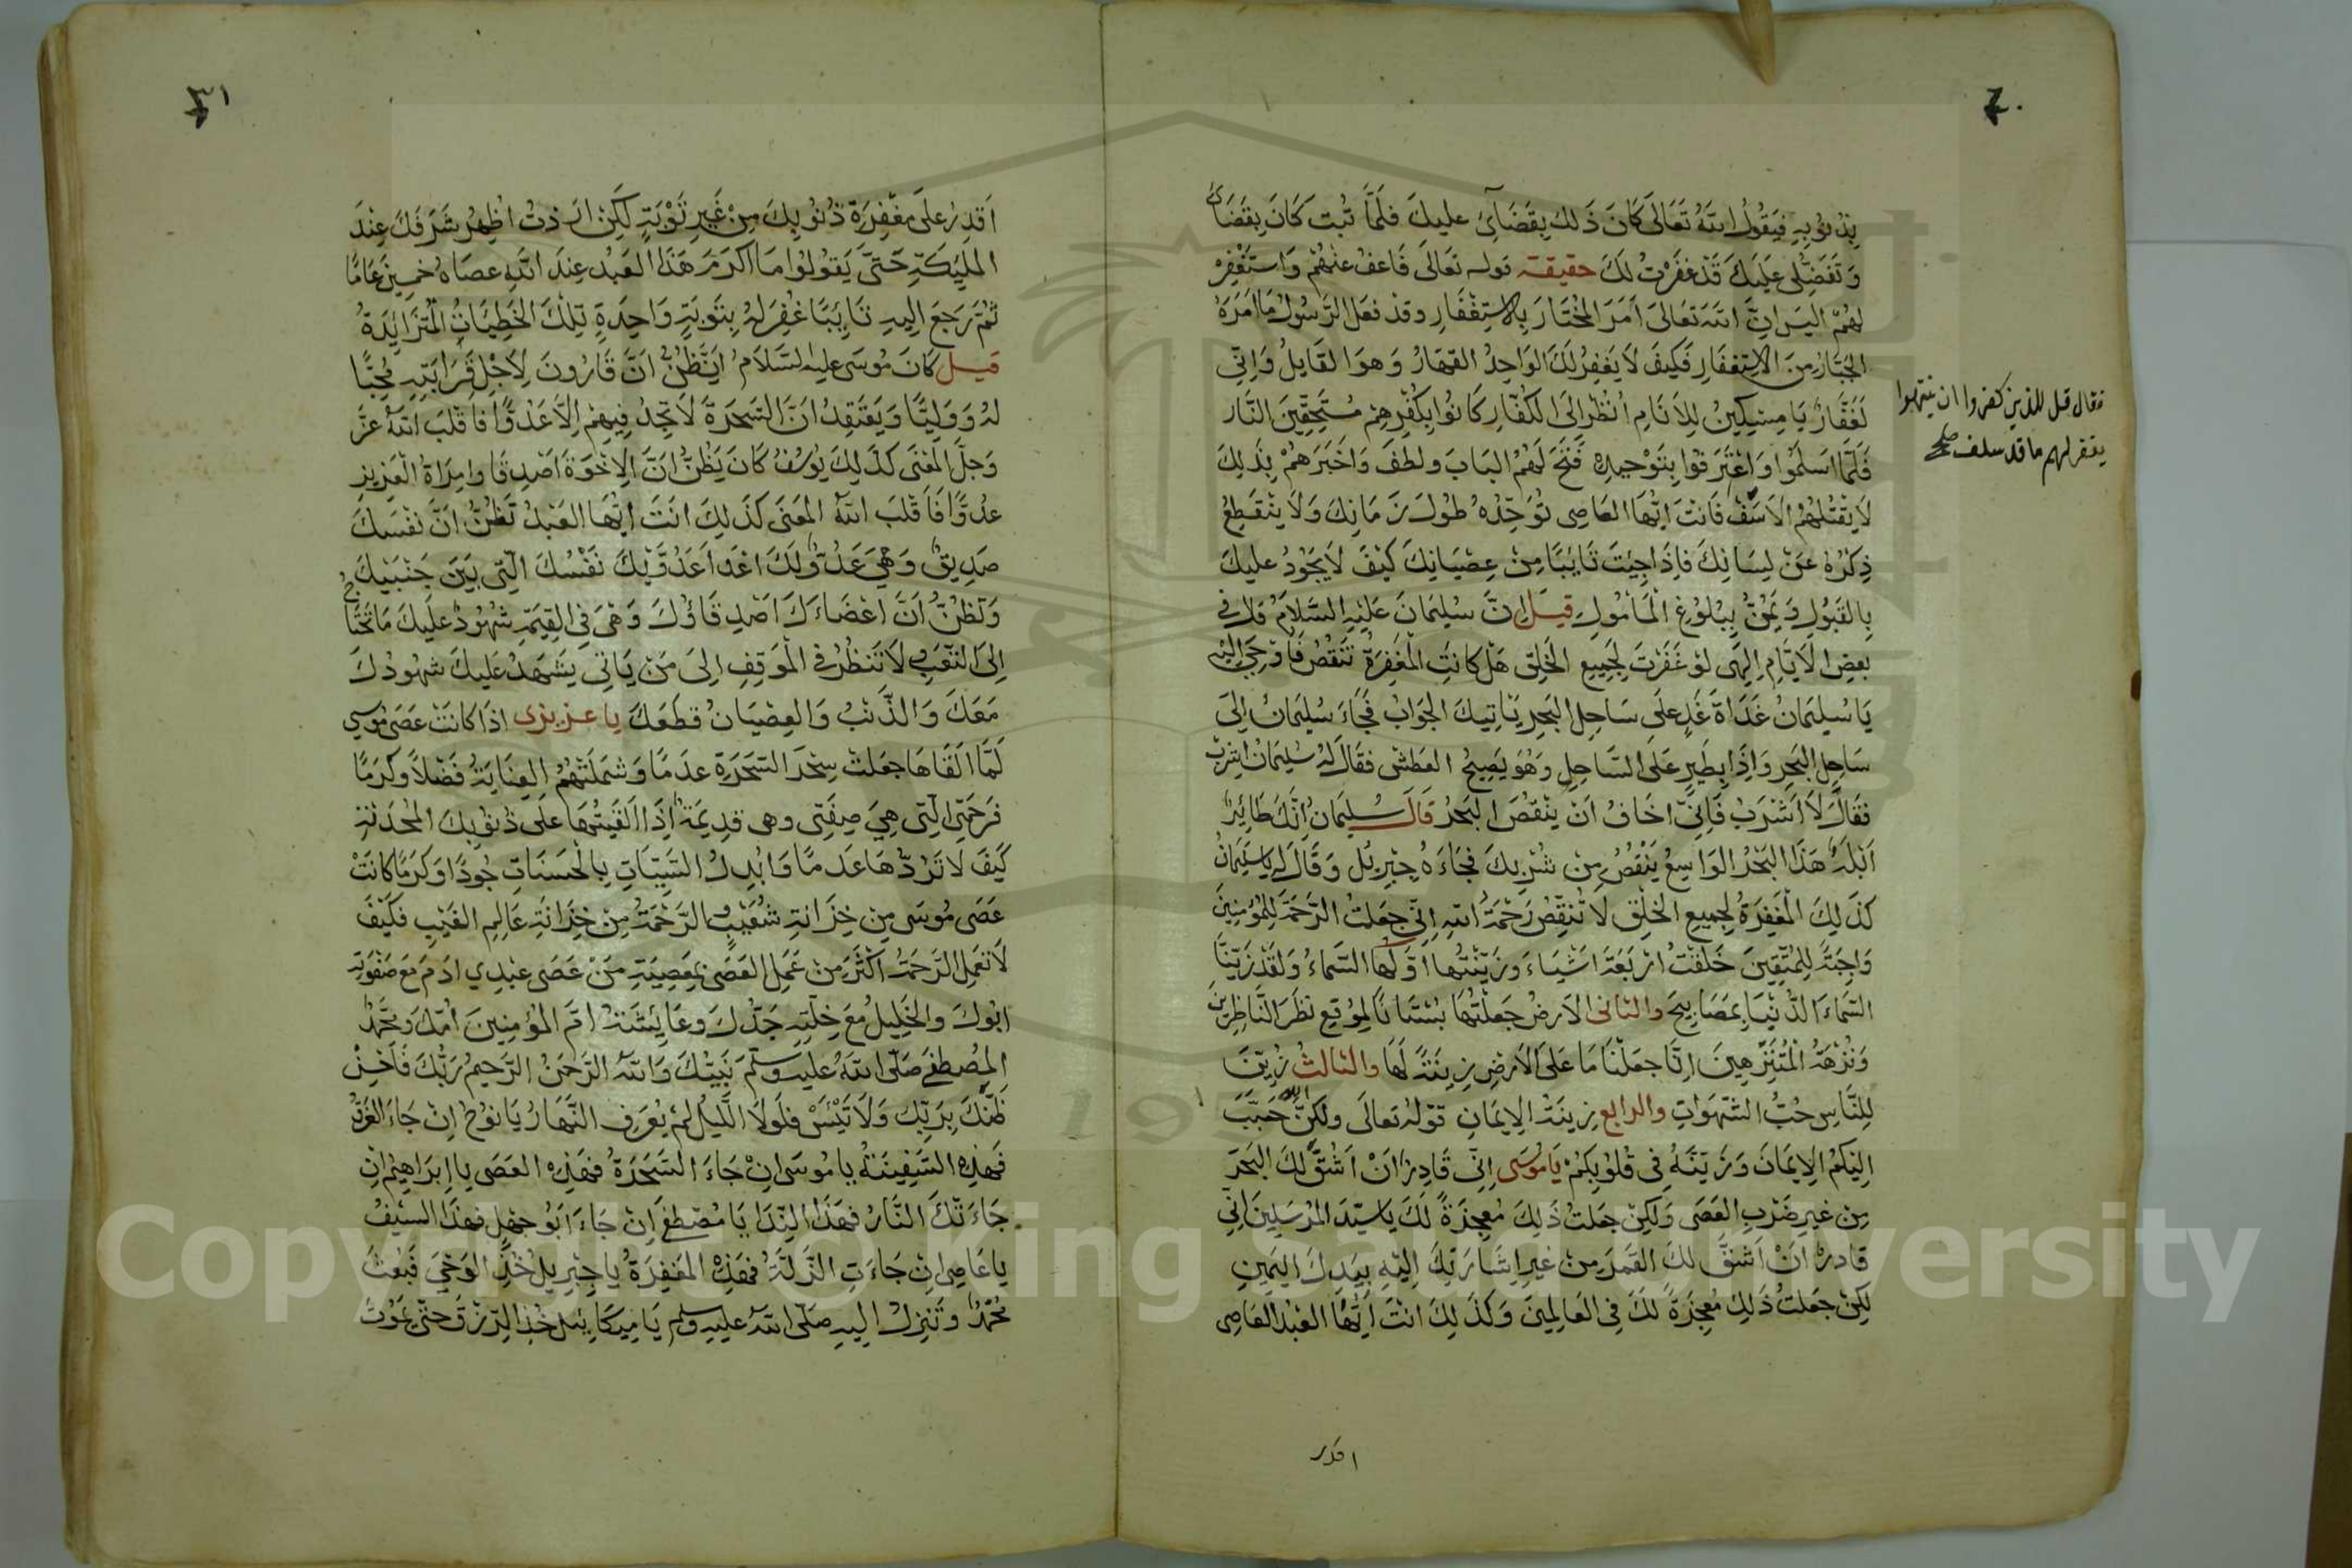 بِذُنُوبِهِ فَيَقُولُ اللَّهُ تَعَالَى كَانَ ذَلِكَ بِقَضَائِي عليكَ فلَمَّا تُبتَ كَانَ بِقَضَائ
وَتَفَضُّلِي عَلَيكَ قَدْ غفَرْتُ لَكَ حقيقة قوله تعَالَى فَاعفُ عنهُمْ وَاستَغْفِرْ
لهُمْ اليسَ انَّ اللَّه تعَالىَ اَمَرَ المُخْتَارَ بِالاستِغْفَارِ وقد فعَلَ الرَّسُولُ مَا امَرَهُ
الجَبَّارُ مِنَ الاستِغفَارِ فَكيفَ لَا يَغفِرُ لَكَ الوَاحِدُ القهَارُ وَهوَ القَايلُ وَاِنِّي
لَغَفَّارٌ يَا مِسْكِينُ لِلاَنَامِ اُنْظُرْ اِلىَ الكُفَّارِ كَانُوا بِكُفْرِهِمْ مُسْتَحِقِّينَ النَّار
فقال قل للذين كفروا ان ينتهوا
يغفر لهم ما قد سلف صح
فَلَمَّا اسلَمُوا وَاعْتَرَفُوا بِتَوْحيدِهِ فَتَحَ لَهُمْ البَابَ ولطفَ وَاخبَرَهمْ بِذَلِكَ
لَا يَقْتُلهُمْ الاَسَفْ فَانتَ ايُّهَا العَاصِى تُوَحِّدُهُ طُولَ زَمَانِكَ وَلَا يَنْقَطِعُ
ذِكْرُهُ عَنْ لِسَانِكَ فَاِذَا جِيْتَ تَايبًا مِنْ عِصْيَانِكَ كَيْفَ لَا يَجُوْدُ عليكَ
بِالقَبُولِ وَيَمُنُّ بِبُلُوْغِ المَأمُولِ قيلَ اِنَّ سُليمَانَ عَلَيْهِ السَّلَامُ قال في
بعضِ الايَّامِ اِلهِى لَوْ غَفَرْتَ لِجَمِيعِ الخَلِقِ هَلْ كانتِ المَغفِرَةُ تَنقُصُ فَاَوْحَى اليْهِ
يَا سُليمَانُ غَدَاةَ غَدٍ علَى سَاحِلِ البَحِرِ يَاتِيكَ الجوَابُ فَجَاءَ سُليمَانُ اِلَى
سَاحِلِ البَحِرِ وَاِذَا بِطَيرٍ عَلَى السَّاحِلِ وَهُوَ يَصِيحُ العَطَشْ فقَالَ لهُ سُليمَانُ اشرَبْ
فقَالَ لَا اَشْرَبْ فَاِنِّى اخَافُ اَنْ يَنْقُصَ البَحْرُ قَالَ سُليمَانُ اِنَّكَ طَائِرٌ
اَبْلَهُ هَذَا البَحْرُ الوَاسِعُ يَنْقُصُ مِنْ شُرْبِكَ فجَاءَهُ جِبْرِيلُ وَقَالَ لَهُ يَاسُلَيمَانُ
كَذَلِكَ المَغفِرَةُ لِجمِيعِ الخَلِقِ لَا تُنقِصُ رَحْمَةُ اللهِ اِنِّي جعَلتُ الرَّحمَةَ لِلمُؤمِنِينَ
وَاجبَةً لِلمُتَّقِينَ خَلقْتُ ارْبَعَةَ اشْيَاءَ وزَيَّنْتُهَا اوَّلُهَا السَّمَاءُ وَلَقَدْ زَيَّنَّا
السَّمَاءَ الدُّنْيَا بِمَصَابِيحَ والثانى الاَرضُ جَعَلْتُهَا بُسْتَانًا لِمَوْقِعِ نَظَرَ النَّاظِرِينَ
وَنُزْهَةُ المُتَنَزِّهِينَ اِنَّا جعَلنَا مَا عَلىَ الاَرْضِ زِينَةً لَهَا والثالثُ زُيِّنَ
لِلنَّاسِ حُبُّ الشَّهَوَاتِ والرابع زِينَةُ الاِيمَانِ قوْلهُ تعَالَى ولَكِنَّ الله حَبَّبَ
اِليْكُمُ الاِيمَانَ وَزَيَّنَهُ فِى قُلوْبِكمْ يَامُوْسَى اِنِّى قَادِرٌ اَنْ اَشُقَّ لَكَ البَحْرَ
مِن غيرِ ضَرْبِ العَصَى وَلَكِنْ جعَلتُ ذَلِكَ مُعجِزَةً لَكَ يَا سيّدَ المُرْسَلِينَ اِنِّي
قَادِرْ اَنْ اَشُقَّ لكَ القَمَرَ مِنْ غيرِ اِشَارَتِكَ اِلَيْهِ بِيَدِكَ اليَمينِ
لَكِنْ جعَلتُ ذَلِكَ مُعجِزَةً لَكَ فِى العَالَمِينَ وَكَذَلِكَ انتَ ايُّهَا العَبْدُ العَاصِى
اقدر
٣١
اَقدِرُ علَى مَغْفِرَةِ ذُنُوبِكَ مِنْ غَيرِ تَوْبَةٍ لكِنْ ارَدْتُ اُظهِرُ شَرَفَكَ عِنْدَ
المَليَكةِ حَتىَّ يَقولُوا مَا اكرَمَ هَذَا العَبْدُ عِندَ اللهِ عصَاهُ خمسِينَ عَامًا
ثُمَّ رَجَعَ اِليهِ تَائِبًا غُفِرَلهُ بِتَوبَةٍ وَاحِدَةٍ تِلْكَ الخَطِيَاتُ المُتَزَائِدَةُ
قيل كَانَ مُوسَى عليه السَّلَامُ ايَظُنُّ انَّ قَارُونَ لِاَجْلِ قَرَابَتِهِ مُحِبًّا
لهُ وَوَليًّا وَيَعْتَقِدُ انَّ السَّحَرَةَ لَا تَجِدُ فِيهِمْ اِلَّا عَدُوًّا فاَقْلَبَ اللهُ عزَّ
وَجلَّ المَعْنَى كَذَلِكَ يُوسُفُ كَانَ يَظُنُّ انَّ الاِخوَةَ اَصْدِقَا وامرَاةُ الْعَزيزِ
عدُوًّا فَاَقلَبَ اللهُ المَعنَى كَذَلِكَ انتَ ايُّهَا العَبْدُ تَظُنُّ انَّ نفْسَكَ
صَدِيقٌ وَهِيَ عَدُوٌّ لَكَ اعْدَا عَدُوِّكَ نَفْسُكَ الَّتِى بَيْنَ جَنْبَيْكَ
وَتظُنُّ اَنَّ اعْضَاءَكَ اَصْدِقَاؤُكَ وَهىَ فِي القِيمَةِ شهُودٌ عَلَيكَ مَا تحْتَاجُ
اِلىَ التَّعَبِ لَا تَنْظُرْ في المَوقِفِ اِلىَ مَنْ يَاتِى يَشهَدُ عَليكَ شهُودُكَ
مَعَكَ وَالذَّنبُ وَالعِصْيَانُ قطَعَكَ يا عزيزى اذَا كانَتْ عَصَى مُوسَى
لَمَّا القَاهَا جعَلتْ سِحْرَ السَّحَرَةِ عدَمًا وَشَمَلَتْهُمْ العِنَايَةُ فَضْلًا وكَرَمًا
فَرَحْمَتِى الَّتِى هِيَ صِفَتِى وهى قدِيمَةٌ اِذَا الْقَيتُهَا علَى ذُنُوبِكَ المُحْدَثَةِ
كَيْفَ لَا تَرُدُّهَا عَدمًا وَابْدِلُ السَّيّئاتِ بِالْحَسَنَاتِ جُودًا وَكَرَمًا كَانَتْ
عَصَى مُوسَى مِنْ خِزَانَةِ شُعَيْبٍ وَالرَّحْمَةُ مِنْ خِزَانَةِ عَالِمِ الغَيْبِ فكَيْفَ
لَا تعمَلِ الرَّحمَةُ اكْثَرَ مِنْ عَمَلِ العَصَى بمَعصِيَةِ مَنْ عَصَى عبْدِي ادَمَ مَعَ صَفْوَتِهِ
ابُوكَ والخَلِيلُ مَعَ خلّتِهِ جَدُّكَ وعَايِشَةُ امُّ المُؤمِنِينَ امُّكَ وَمحَمَّدٌ
المُصْطَفَى صَلَّى اللهُ عليه وسلَّمَ نَبيُّكَ وَاللهُ الرَّحْمَنُ الرَّحِيمُ رَبُّكَ فَاَحْسِنْ
ظَنَّكَ بِرَبِّكَ وَلَا تَيْئَسْ فَلَولَا اللَّيلُ لَمْ يُعرَفِ النَّهَارُ يَا نُوحُ اِنْ جَاءَ الغَرَقُ
فهَذِهِ السَّفِينَةُ يا مُوسَى اِنْ جَاءَ السَّحَرَةُ فهَذِهِ العَصَى يا اِبرَاهِيمُ اِنْ
جَاءَتْكَ النَّارُ فهَذَا النِّدَا يَا مُصْطَفَى اِنْ جَاءَ ابُو جهْلٍ فهذَا السَّيْفُ
يا عَاصِى اِنْ جَاءَتِ الزَّلَّةُ فهَذِهِ المَغفِرَةُ يا جبْرِيلُ خُذِ الوَحْيَ قَبْعَثَ
مُحمَّدٌ وتَنزِلُ اليهِ صَلَّى اللهُ عليهِ وسلم يَا مِيكَائيلُ خُذِ الرِّزقَ حَتىَّ يَمُوتَ
Copyright © King Saud University